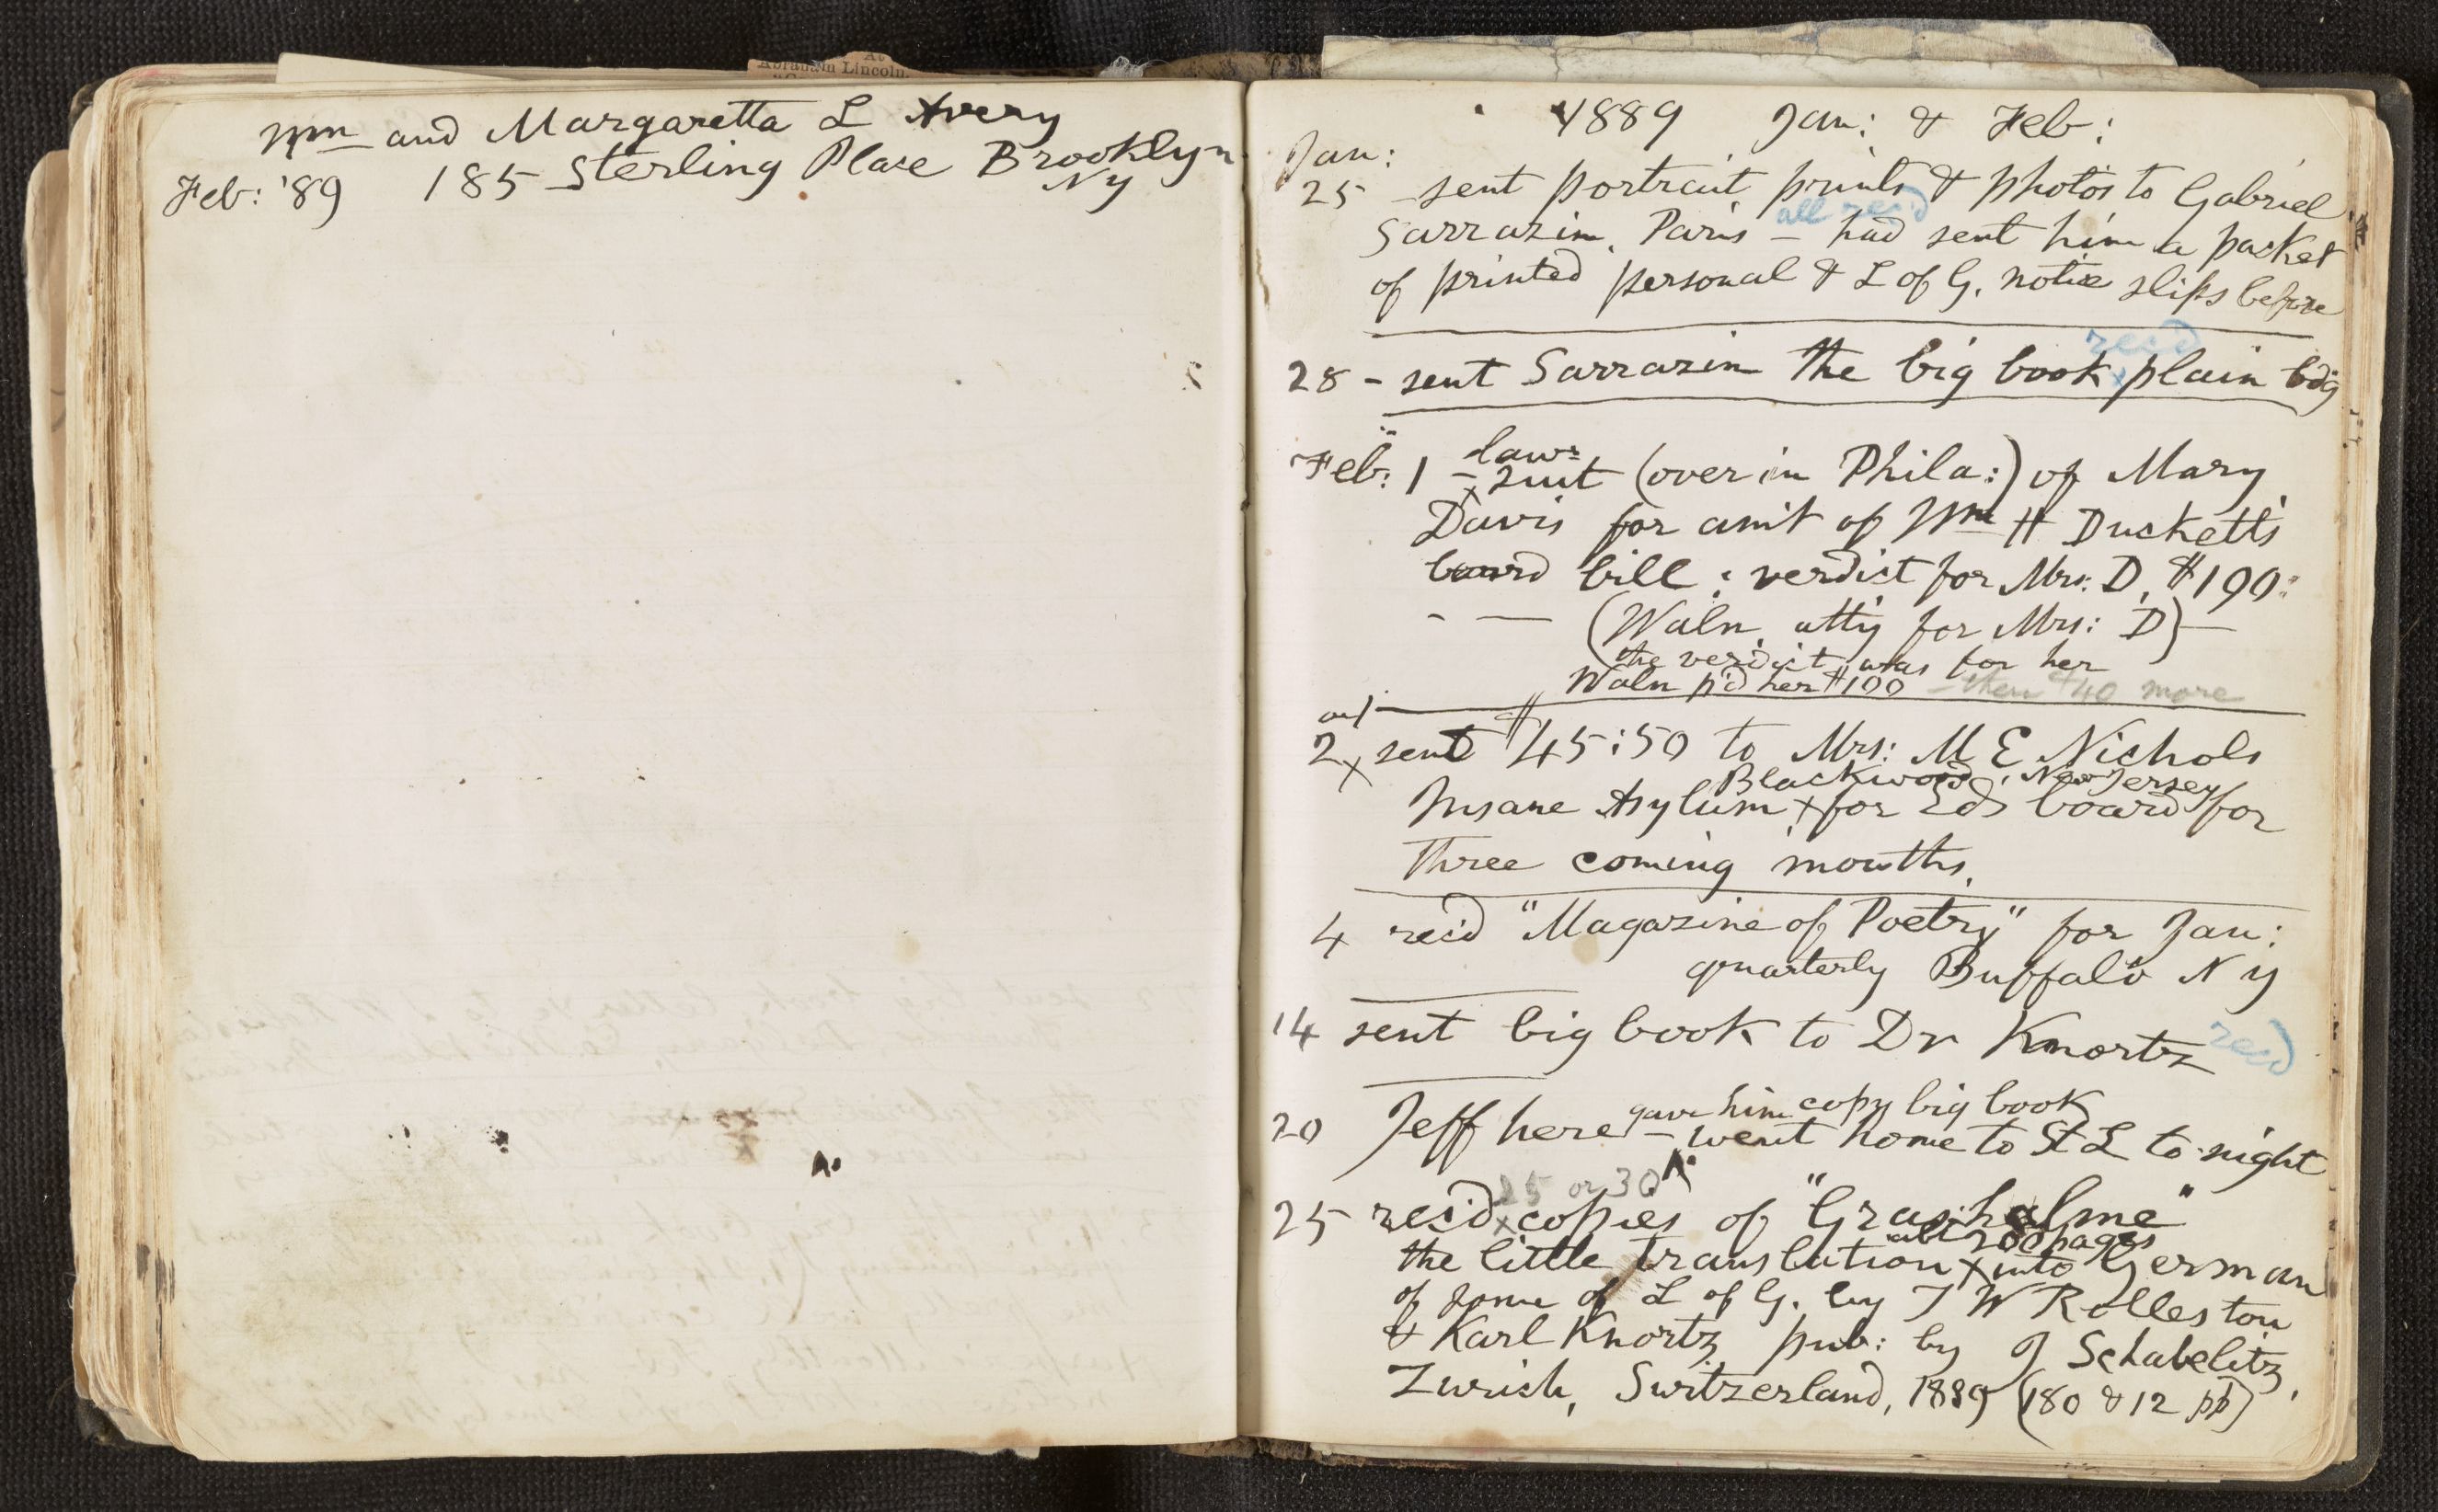 Abraham Lincoln.
Wm and Margaretta L Avery
Feb: '89 185 Sterling Place Brooklyn
N Y
1889 Jan: & Feb:
Jan:
25 – sent portrait prints & photos to Gabriel
all rec'd
Sarrazin, Paris – had sent him a packet
of printed personal & L of G. notice slips before
rec'd
28 – sent Sarrazin the big book plain bdg
law-
Feb: 1 – suit (over in Phila:) of Mary
Davis for am't of Wm H Duckett's
board bill : verdict for Mrs: D, $190:
– — (Waln, att'y for Mrs: D) —
the verdict was for her
Waln p'd her $100 – then $40 more
2 sent $45:50 to Mrs: M E Nichols
Blackwood, New Jersey
Insane Asylum, for Ed's board for
three coming months.
4 rec'd "Magazine of Poetry" for Jan:
quarterly Buffalo N Y
14 sent big book to Dr Knortz rec'd
gave him copy big book
20 Jeff here – went home to St L to-night
25 or 30
25 rec'd copies of "Grashalme"
abt 200 pages
the little translation into German
of some of L of G. by T W Rolleston
& Karl Knortz pub: by J Schabelitz,
Zurich, Switzerland, 1889 (180 & 12 pp)